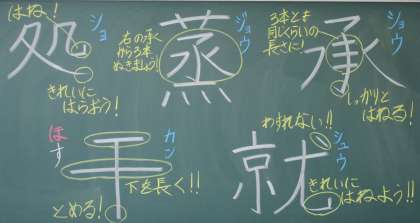 はね!
処
ショ
きれいに
はらおう!
右の承く
から3本
ぬきましょう!
蒸
ジョウ
3本とも
同じくらいの
長さに!
承
ショウ
しっかりと
はねる!
ほす
干
カン
下を長く!!
とめる!
わすれない!!
就
シュウ
きれいに
はねよう!!